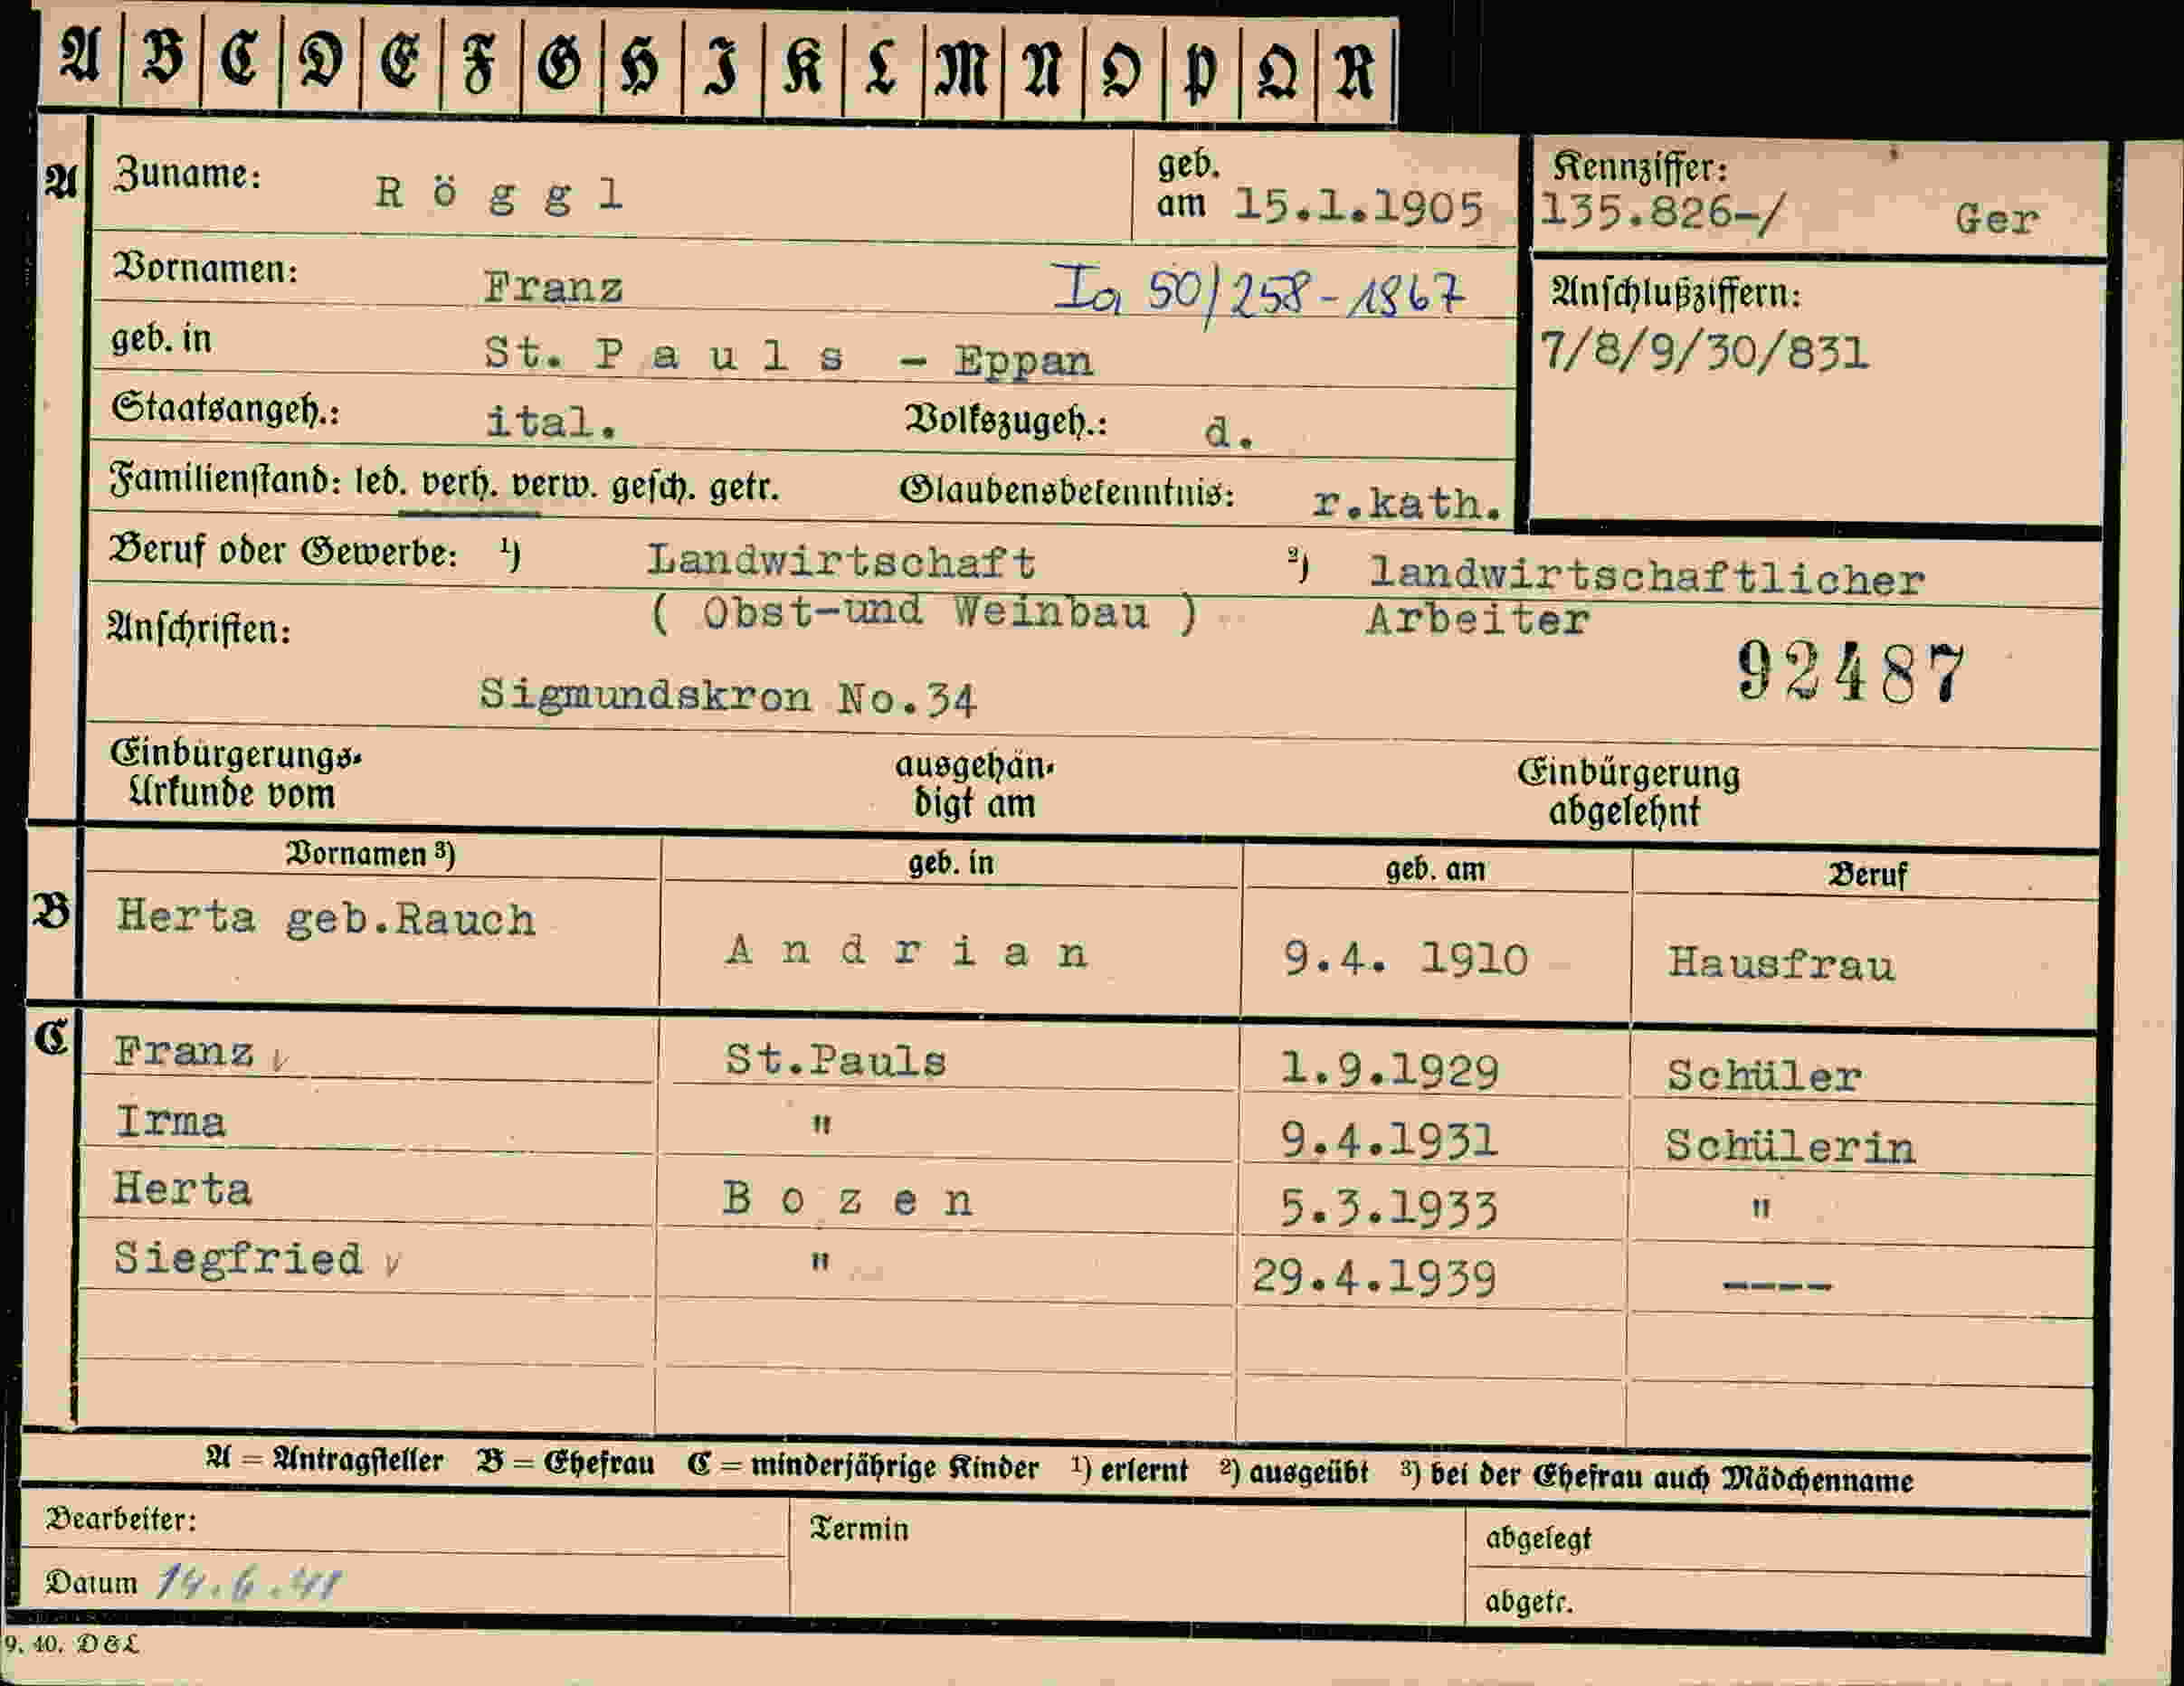 A B C D E F G H I K L M N O P Q R
A Zuname: Röggl geb. am 15.1.1905
Kennziffer: 135.826-/ Ger
Vornamen: Franz Ia 50/258-1867
Anschlußziffern:
7/8/9/30/831
geb. in St. Pauls - Eppan
Staatsangeh.: ital. Volkszugeh.: d.
Familienstand: led. verh. verw. gesch. getr. Glaubensbekenntnis: r.kath.
Beruf oder Gewerbe: 1) Landwirtschaft 2) landwirtschaftlicher
( Obst-und Weinbau ) Arbeiter
Anschriften:
92487
Sigmundskron No.34
Einbürgerungs- ausgehän- Einbürgerung
Urkunde vom digt am abgelehnt
Vornamen 3) geb. in geb. am Beruf
B Herta geb.Rauch Andrian 9.4. 1910 Hausfrau
C Franz v St.Pauls 1.9.1929 Schüler
Irma " 9.4.1931 Schülerin
Herta Bozen 5.3.1933 "
Siegfried v " 29.4.1939 ----
A = Antragsteller B = Ehefrau C = minderjährige Kinder 1) erlernt 2) ausgeübt 3) bei der Ehefrau auch Mädchenname
Bearbeiter: Termin abgelegt
Datum 14.6.41 abgetr.
9. 40. D&L